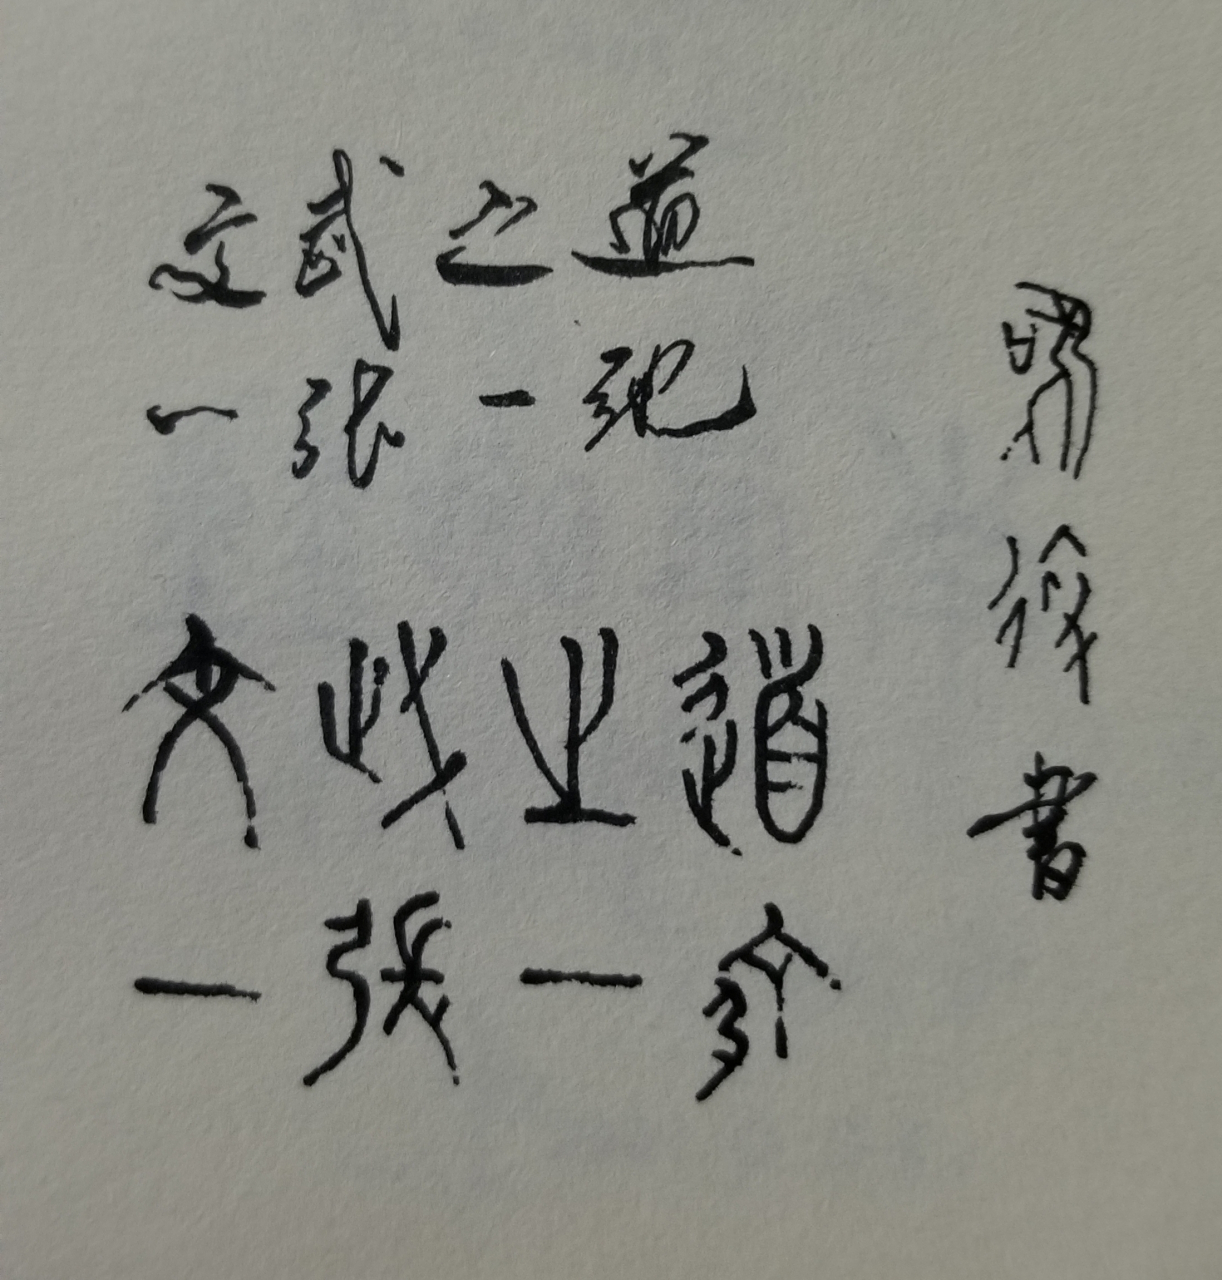 文武之道
一张一弛
文武之道
一張一弛
書